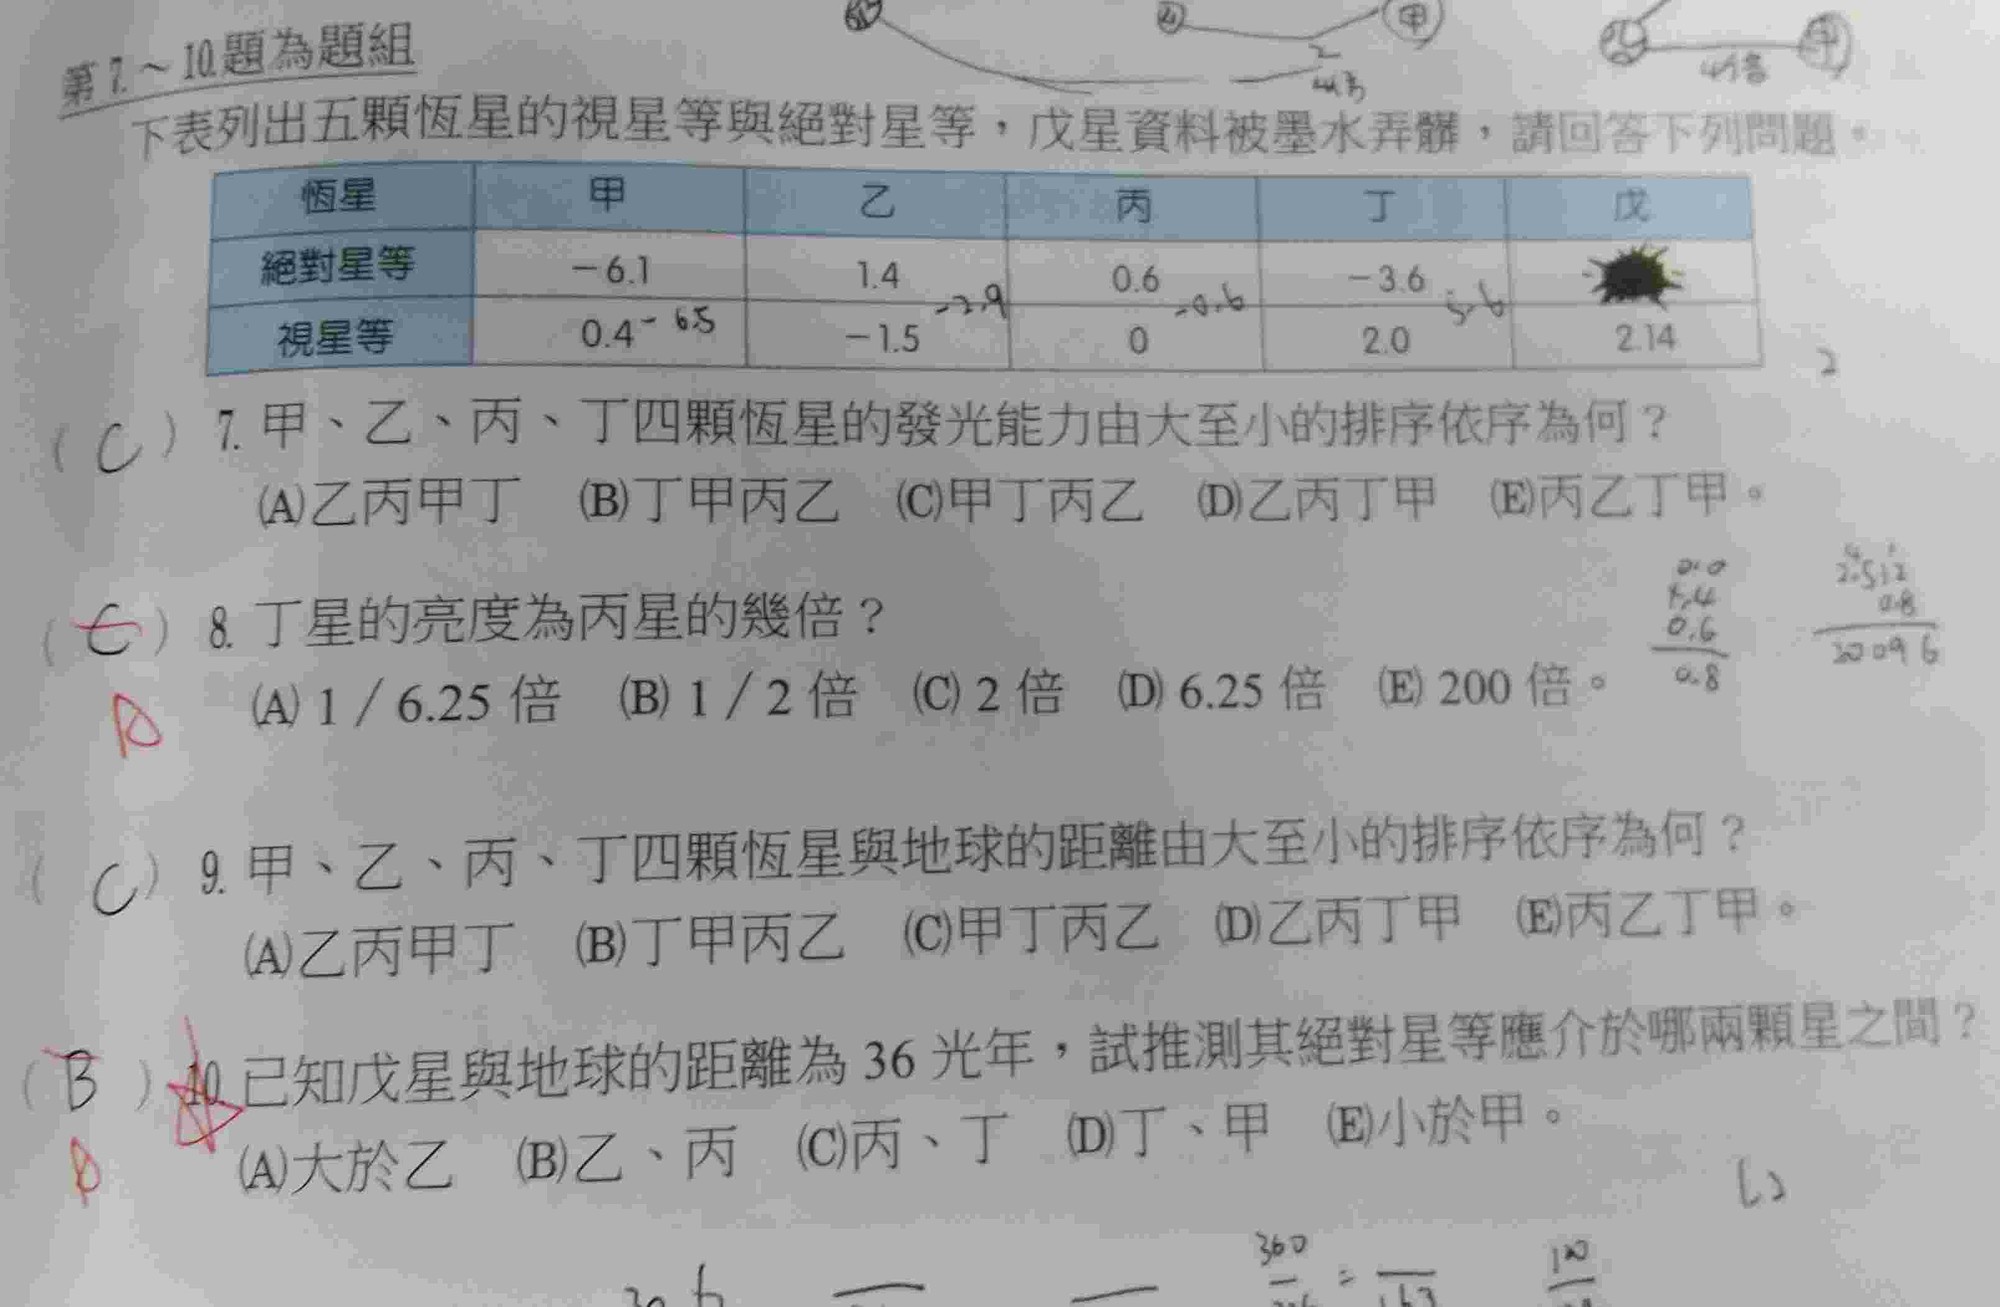 甲
甲
4倍
第7.～10.題為題組
下表列出五顆恆星的視星等與絕對星等，戊星資料被墨水弄髒，請回答下列問題。
恆星 甲 乙 丙 丁 戊
絕對星等 －6.1 1.4 0.6 －3.6
-2.9 -0.6 5.6
視星等 0.4 －1.5 0 2.0 2.14
-6.5
2
（C）7. 甲、乙、丙、丁四顆恆星的發光能力由大至小的排序依序為何？
(A)乙丙甲丁 (B)丁甲丙乙 (C)甲丁丙乙 (D)乙丙丁甲 (E)丙乙丁甲。
（C）8. 丁星的亮度為丙星的幾倍？
0.6
0.8
2.512
0.8
20096
A
(A) 1／6.25 倍 (B) 1／2 倍 (C) 2 倍 (D) 6.25 倍 (E) 200 倍。
（C）9. 甲、乙、丙、丁四顆恆星與地球的距離由大至小的排序依序為何？
(A)乙丙甲丁 (B)丁甲丙乙 (C)甲丁丙乙 (D)乙丙丁甲 (E)丙乙丁甲。
（B）10. 已知戊星與地球的距離為 36 光年，試推測其絕對星等應介於哪兩顆星之間？
A
(A)大於乙 (B)乙、丙 (C)丙、丁 (D)丁、甲 (E)小於甲。
360